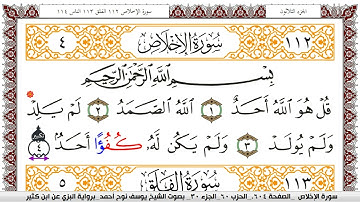 الجزء الثلاثون سورة الإخلاص ١١٢ الفلق ١١٣ الناس ١١٤
١١٢ سُورَةُ الإِخْلَاصِ ٤
بِسْمِ اللَّهِ الرَّحْمَٰنِ الرَّحِيمِ
قُلْ هُوَ اللَّهُ أَحَدٌ ١ اللَّهُ الصَّمَدُ ٢ لَمْ يَلِدْ
وَلَمْ يُولَدْ ٣ وَلَمْ يَكُن لَّهُۥ كُفُؤًا أَحَدٌۢ ٤
١١٣ سُورَةُ الْفَلَقِ ٥
سورة الإخلاص الصفحة ٦٠٤ الحزب ٦٠ الجزء ٣٠ بصوت الشيخ يوسف نوح أحمد برواية البزي عن ابن كثير